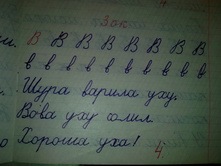 Зак
и. В В В В В В В В
в в в в в в в в в в
Шура варила уху.
Вова уху солил.
Хороша уха! 4